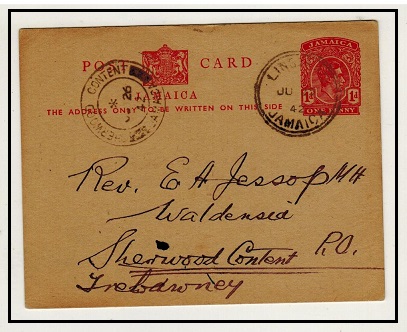 POST CARD
JAMAICA
THE ADDRESS ONLY TO BE WRITTEN ON THIS SIDE
JAMAICA
1d 1d
ONE PENNY
CONTENT
JU
42
JAMAICA
Rev. E A Jessop MH
Waldensia
Sherwood Content P.O.
Trelawney